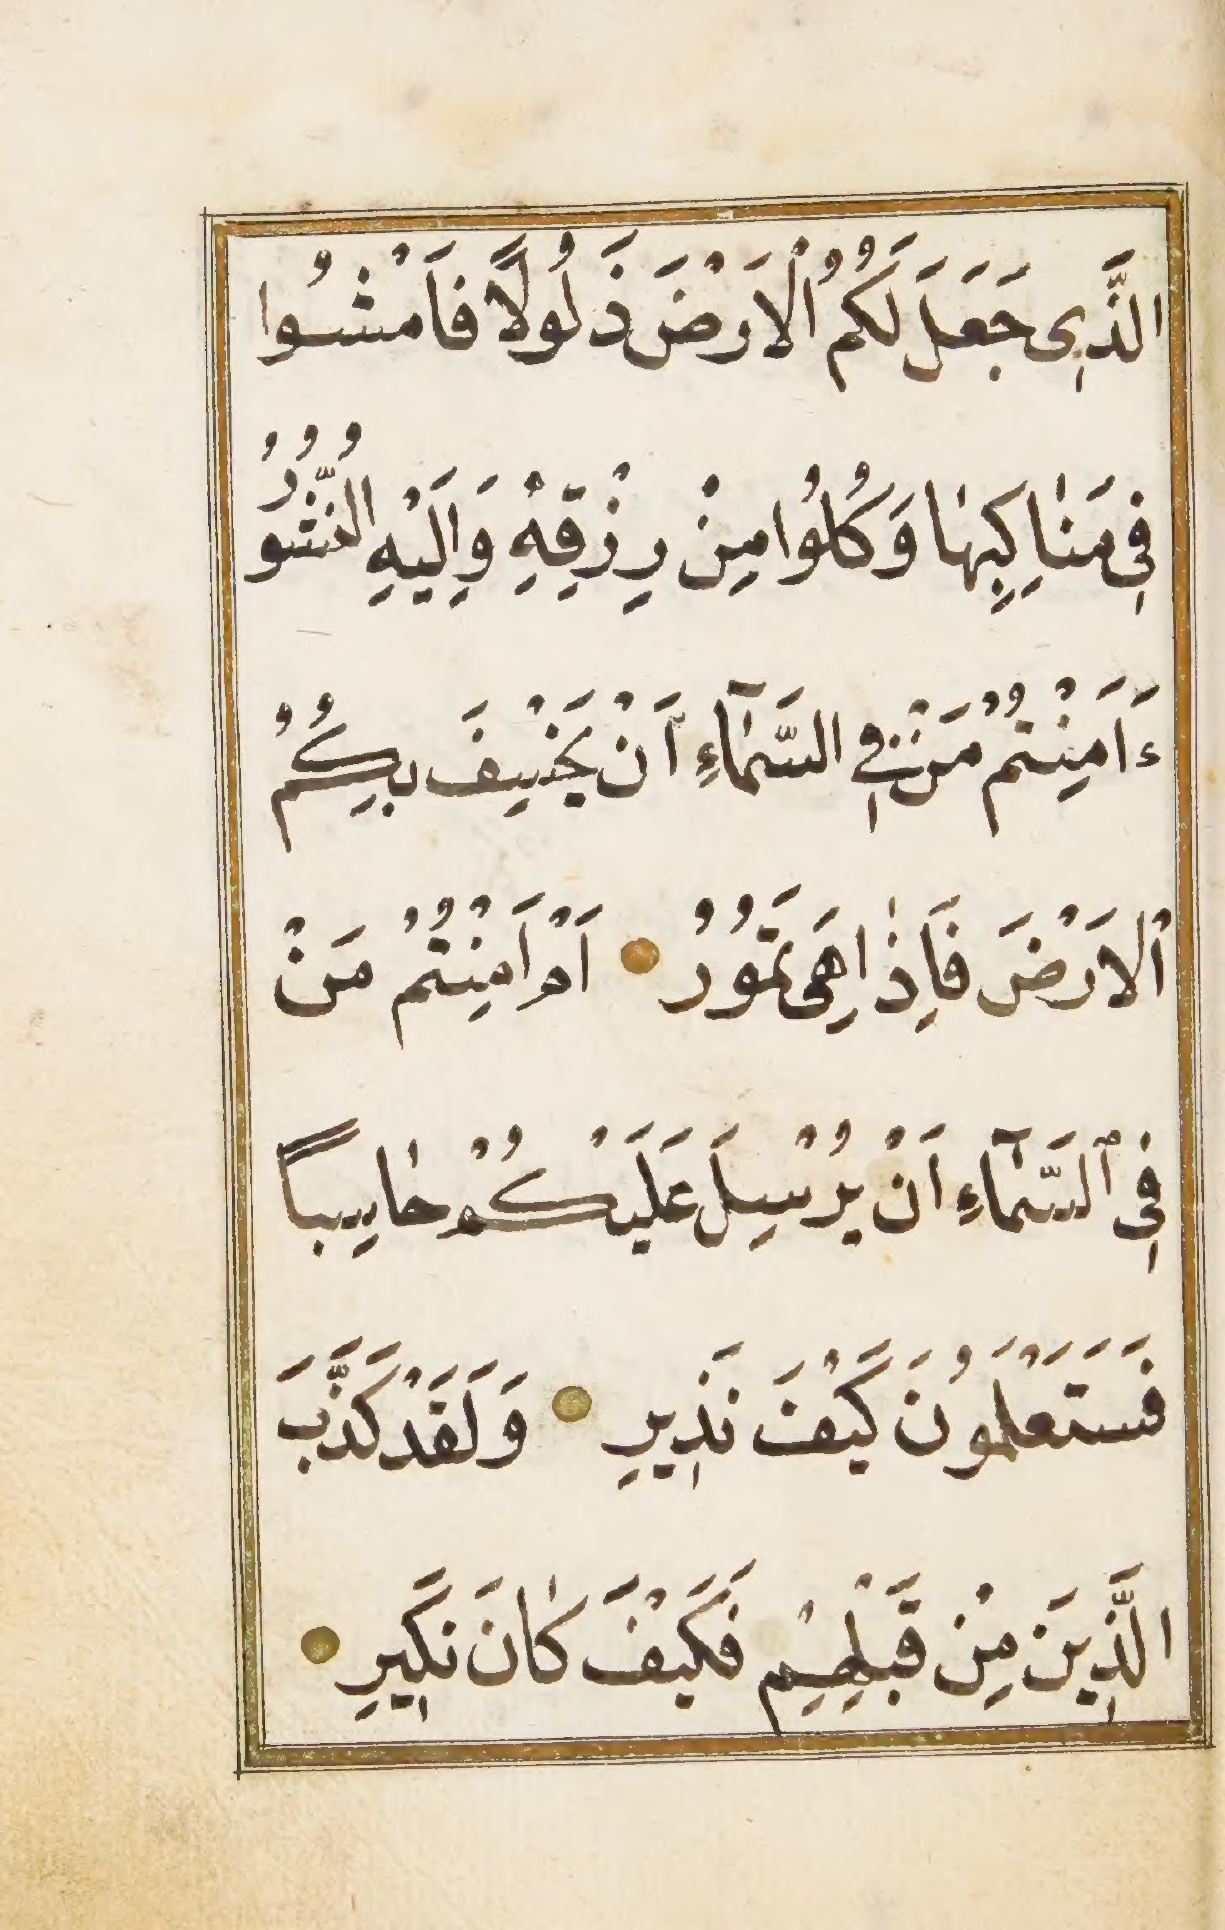 الَّذِى جَعَلَ لَكُمُ الْاَرْضَ ذَلُولًا فَاَمْشُوا
فِى مَنَاكِبِهَا وَكُلُوا مِنْ رِزْقِهِ وَاِلَيْهِ النُّشُورُ
ءَاَمِنْتُمْ مَنْ فِى السَّمَآءِ اَنْ يَخْسِفَ بِكُمُ
الْاَرْضَ فَاِذَا هِىَ تَمُورُ اَمْ اَمِنْتُمْ مَنْ
فِى السَّمَآءِ اَنْ يُرْسِلَ عَلَيْكُمْ حَاصِباً
فَسَتَعْلَمُونَ كَيْفَ نَذِيرِ وَلَقَدْ كَذَّبَ
الَّذِينَ مِنْ قَبْلِهِمْ فَكَيْفَ كَانَ نَكِيرِ